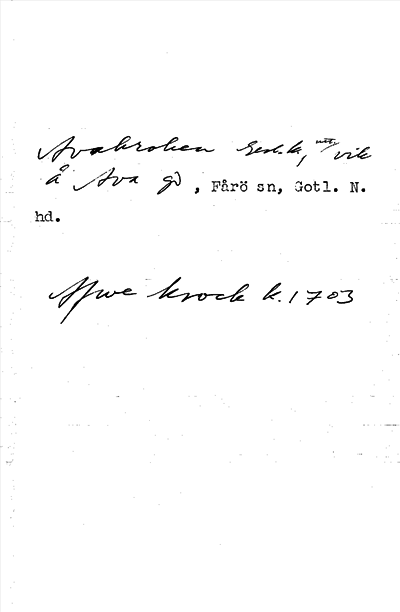 Avakroken Geol.k., vik
å Ava gd, Fårö sn, Gotl. N.
hd.
Afwe krock k. 1703